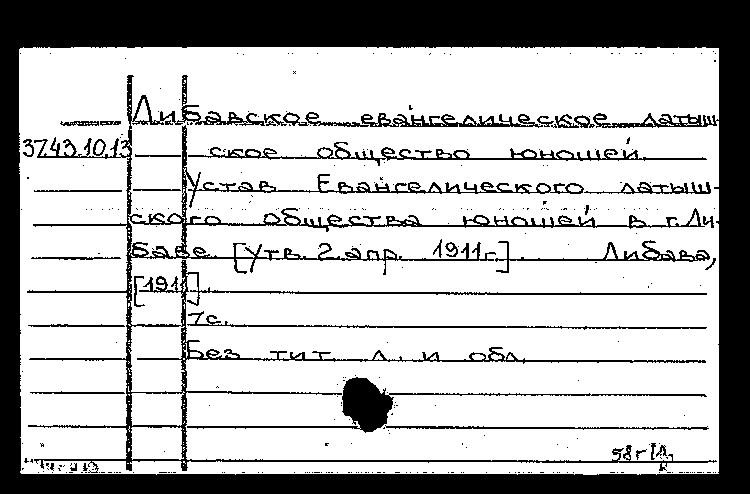 Либавское евангелическое латыш-
37.43.10.13 ское общество юношей.
Устав Евангелического латыш-
ского общества юношей в г. Ли-
баве. [Утв. 2 апр. 1911г.]. Либава,
[1911].
7с.
Без тит. л. и обл.